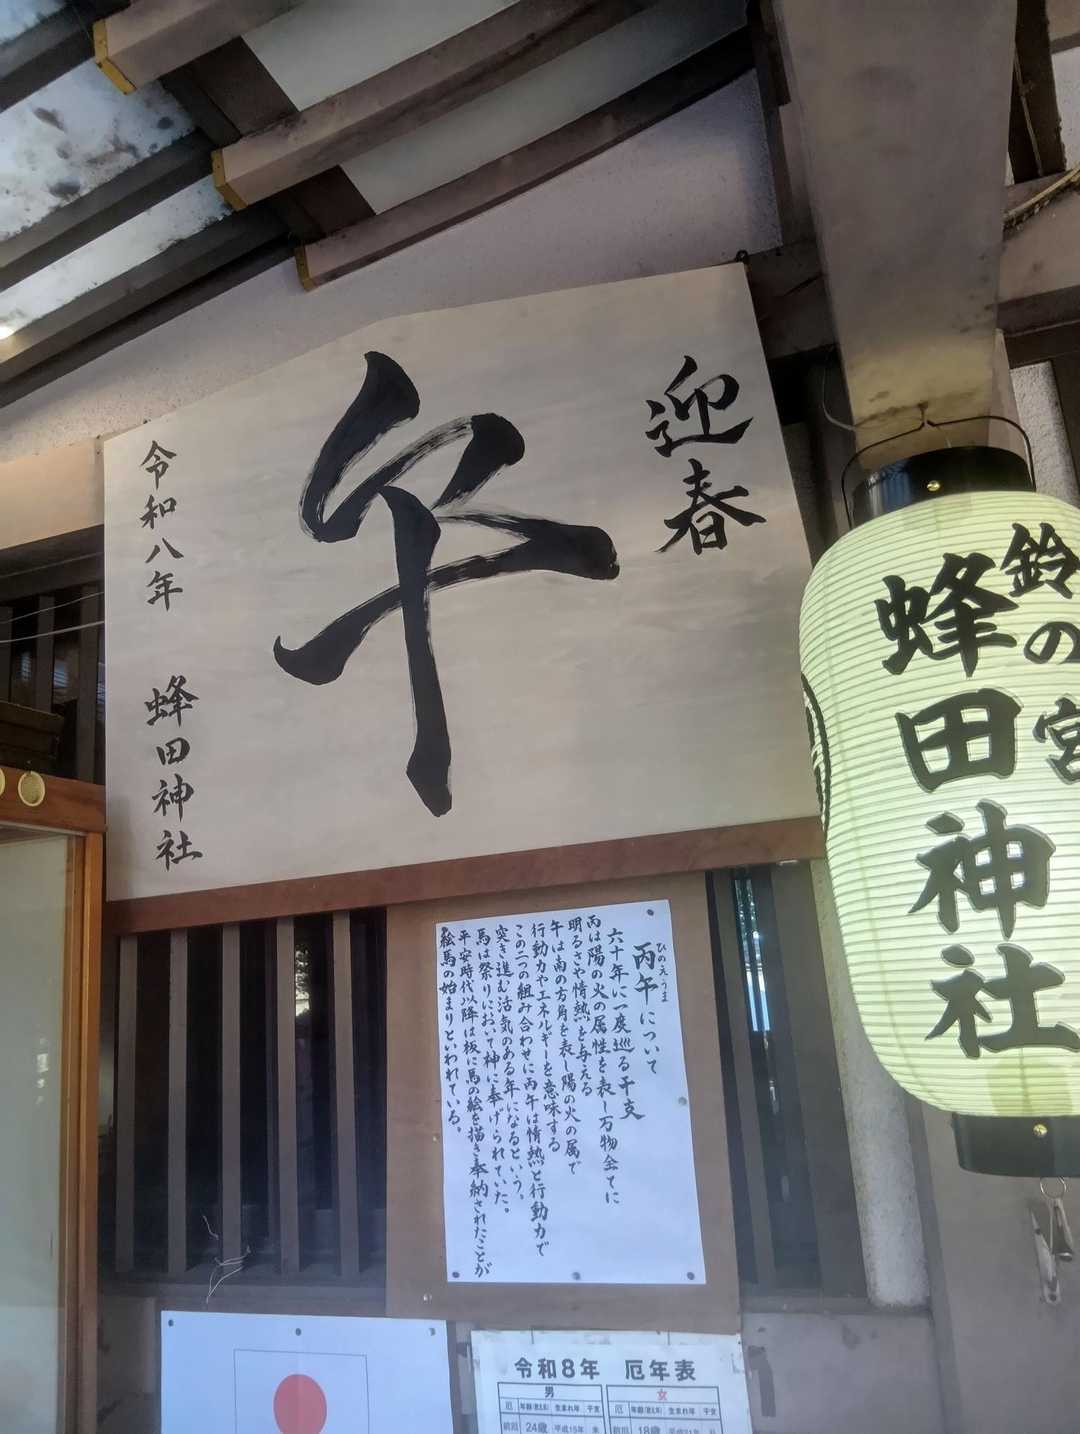 迎春
午
令和八年 蜂田神社
鈴の宮
蜂田神社
丙午について
ひのえうま
六十年に一度巡る干支
丙は陽の火の属性を表し万物全てに
明るさや情熱を与える
午は南の方角を表し陽の火の属で
行動力やエネルギーを意味する
この二つの組み合わせに丙午は情熱と行動力で
突き進む活気のある年になるという。
馬は祭りにおいて神に奉げられていた。
平安時代以降は板に馬の絵を描き奉納されたことが
絵馬の始まりといわれている。
令和8年 厄年表
男 女
厄 年齢(数え年) 生まれ年 干支 厄 年齢(数え年) 生まれ年 干支
前厄 24歳 平成15年 未 前厄 18歳 平成21年